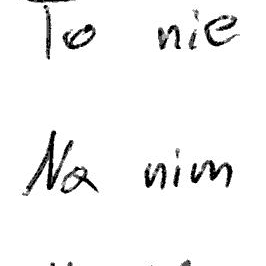 To nie
Na nim